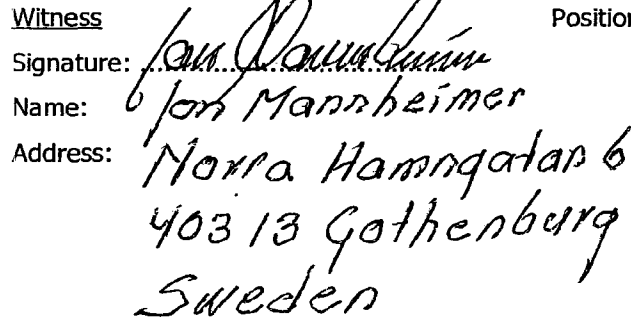 Witness Position
Signature: Jan Mannheimer
Name: Jan Mannheimer
Address: Norra Hamngatan 6
403 13 Gothenburg
Sweden